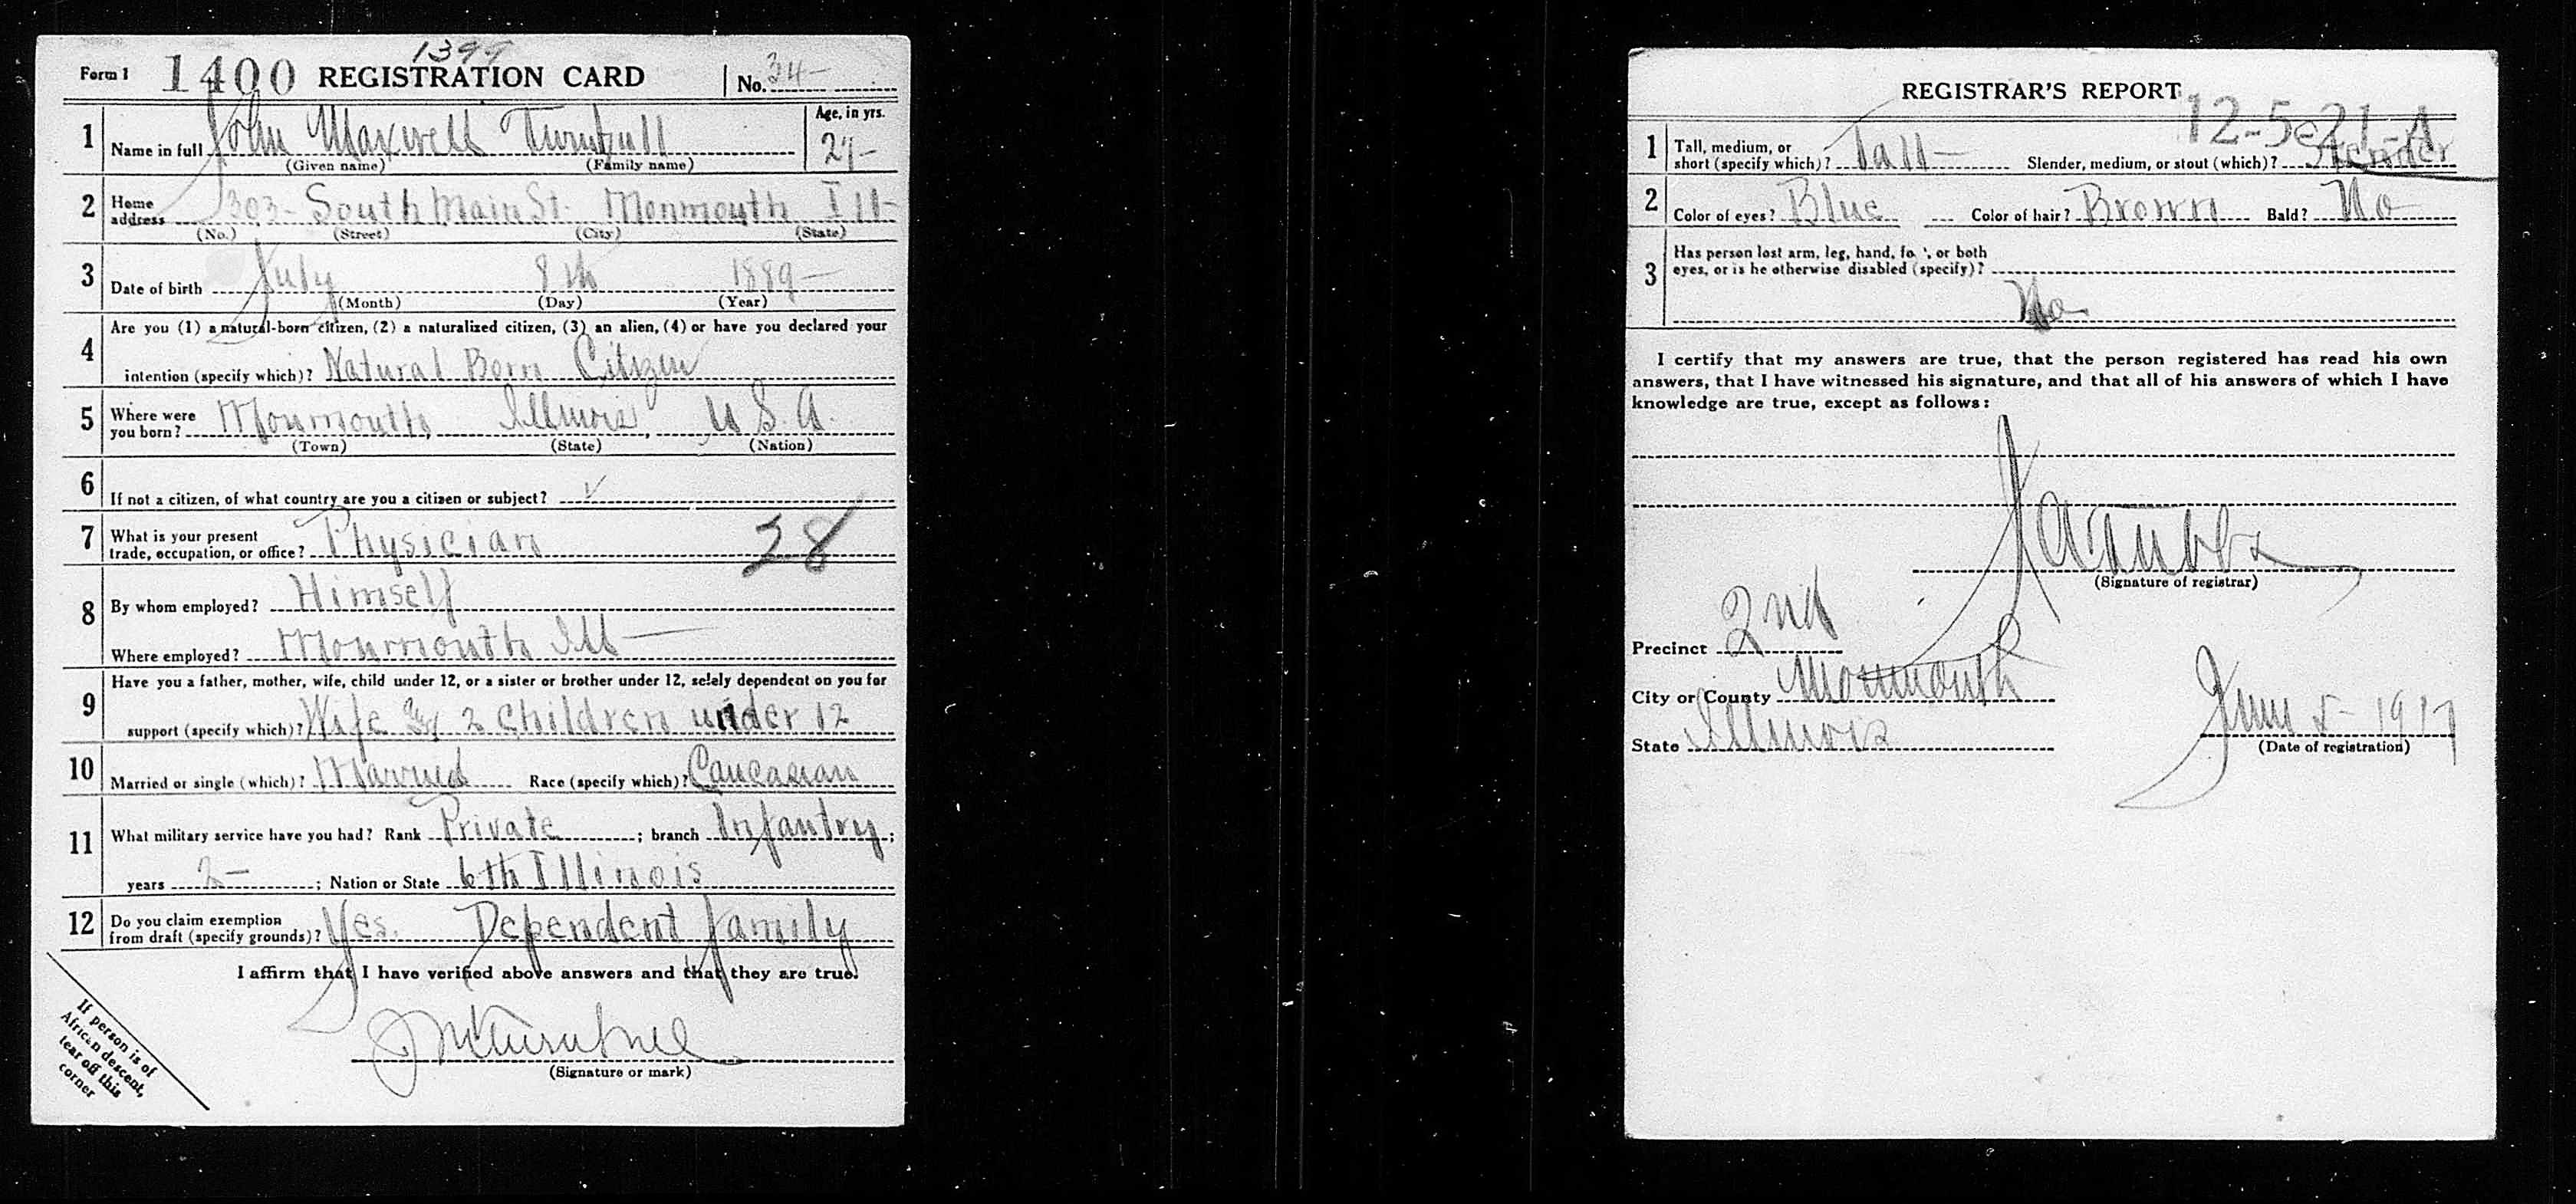 1399
Form 1 1400 REGISTRATION CARD No. 34
Age, in yrs.
1 Name in full John Maxwell Turnbull 27
(Given name) (Family name)
2 Home address 303 South Main St. Monmouth Ill
(No.) (Street) (City) (State)
3 Date of birth July 8th 1889
(Month) (Day) (Year)
4 Are you (1) a natural-born citizen, (2) a naturalized citizen, (3) an alien, (4) or have you declared your
intention (specify which)? Natural Born Citizen
5 Where were you born? Monmouth, Illinois, U S. A.
(Town) (State) (Nation)
6 If not a citizen, of what country are you a citizen or subject? ✓
7 What is your present trade, occupation, or office? Physician 38
8 By whom employed? Himself
Where employed? Monmouth Ill
9 Have you a father, mother, wife, child under 12, or a sister or brother under 12, solely dependent on you for
support (specify which)? Wife and 2 children under 12
10 Married or single (which)? Married Race (specify which)? Caucasian
11 What military service have you had? Rank Private; branch Infantry;
years 2; Nation or State 6th Illinois
12 Do you claim exemption from draft (specify grounds)? Yes. Dependent family
I affirm that I have verified above answers and that they are true.
J M Turnbull
(Signature or mark)
If person is of
African descent,
tear off this
corner
REGISTRAR'S REPORT
12-5-21-A
1 Tall, medium, or short (specify which)? Tall Slender, medium, or stout (which)? Slender
2 Color of eyes? Blue Color of hair? Brown Bald? No
3 Has person lost arm, leg, hand, fo , or both
eyes, or is he otherwise disabled (specify)?
No
I certify that my answers are true, that the person registered has read his own
answers, that I have witnessed his signature, and that all of his answers of which I have
knowledge are true, except as follows:
(Signature of registrar)
Precinct 2nd
City or County Monmouth
State Illinois
June 5 - 1917
(Date of registration)